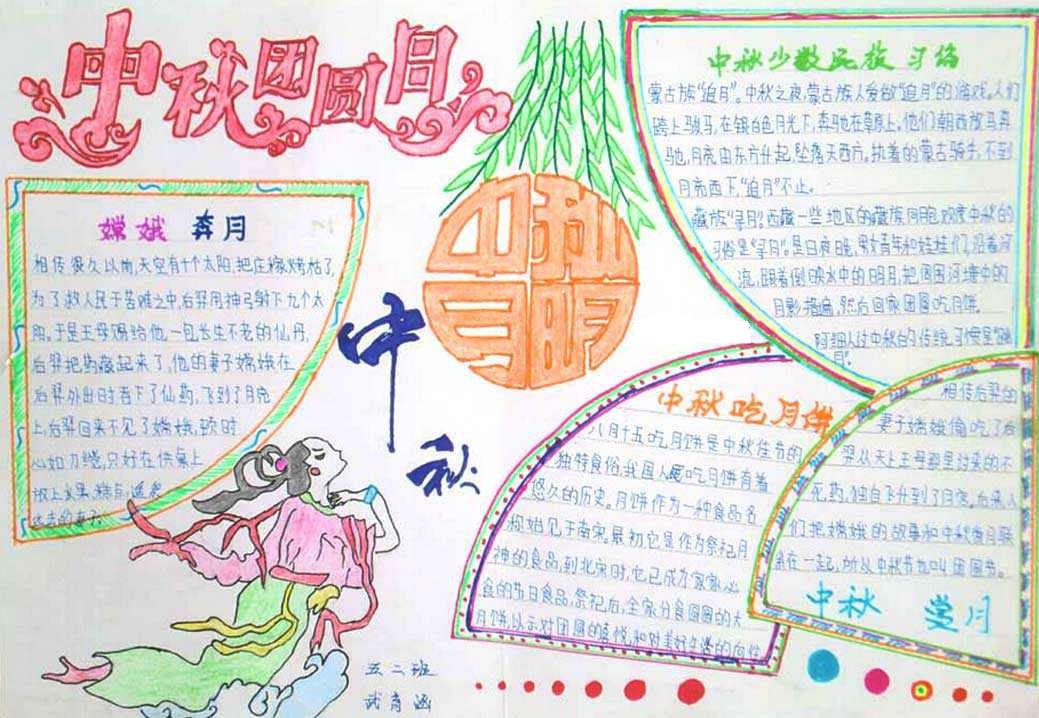 中秋团圆月
嫦娥 奔月
相传很久以前,天空有十个太阳,把庄稼烤枯了,
为了救人民于苦难之中,后羿用神弓射下九个太
阳。于是王母赐给他一包长生不老的仙丹,
后羿把药藏起来了,他的妻子嫦娥在
后羿外出时吞下了仙药,飞到了月亮
上,后羿回来不见了嫦娥,顿时
心如刀绞,只好在供桌上
放上水果、糕点,遥祭
远去的妻子。
中秋
中秋
明月
中秋少数民族习俗
蒙古族“追月”。中秋之夜,蒙古族人爱做“追月”的游戏。人们
跨上骏马,在银白色月光下,奔驰在草原上。他们朝西放马奔
驰,月亮由东方升起,坠落天西方。执着的蒙古骑手,不到
月亮西下,“追月”不止。
藏族“寻月”。西藏一些地区的藏族同胞欢度中秋的
习俗是“寻月”。是日夜晚,男女青年和娃娃们,沿着河
流,跟着倒映水中的明月,把周围河塘中的
月影找遍,然后回家团圆吃月饼。
阿细人过中秋的传统习惯是“跳
月”。
中秋吃月饼
八月十五吃月饼是中秋佳节的
独特食俗,我国人民吃月饼有着
悠久的历史。月饼作为一种食品名
称始见于南宋。最初它是作为祭祀月
神的食品,到北宋时,它已成为家家必
食的节日食品,祭祀后,全家分食圆圆的大
月饼,以示对团圆的喜悦和对美好生活的向往
相传后羿的
妻子嫦娥偷吃了后
羿从天上王母那里讨来的不
死药,独自飞升到了月宫。后来人
们把嫦娥的故事和中秋赏月联
系在一起,所以中秋节也叫团圆节。
中秋 赏月
五二班
武育函